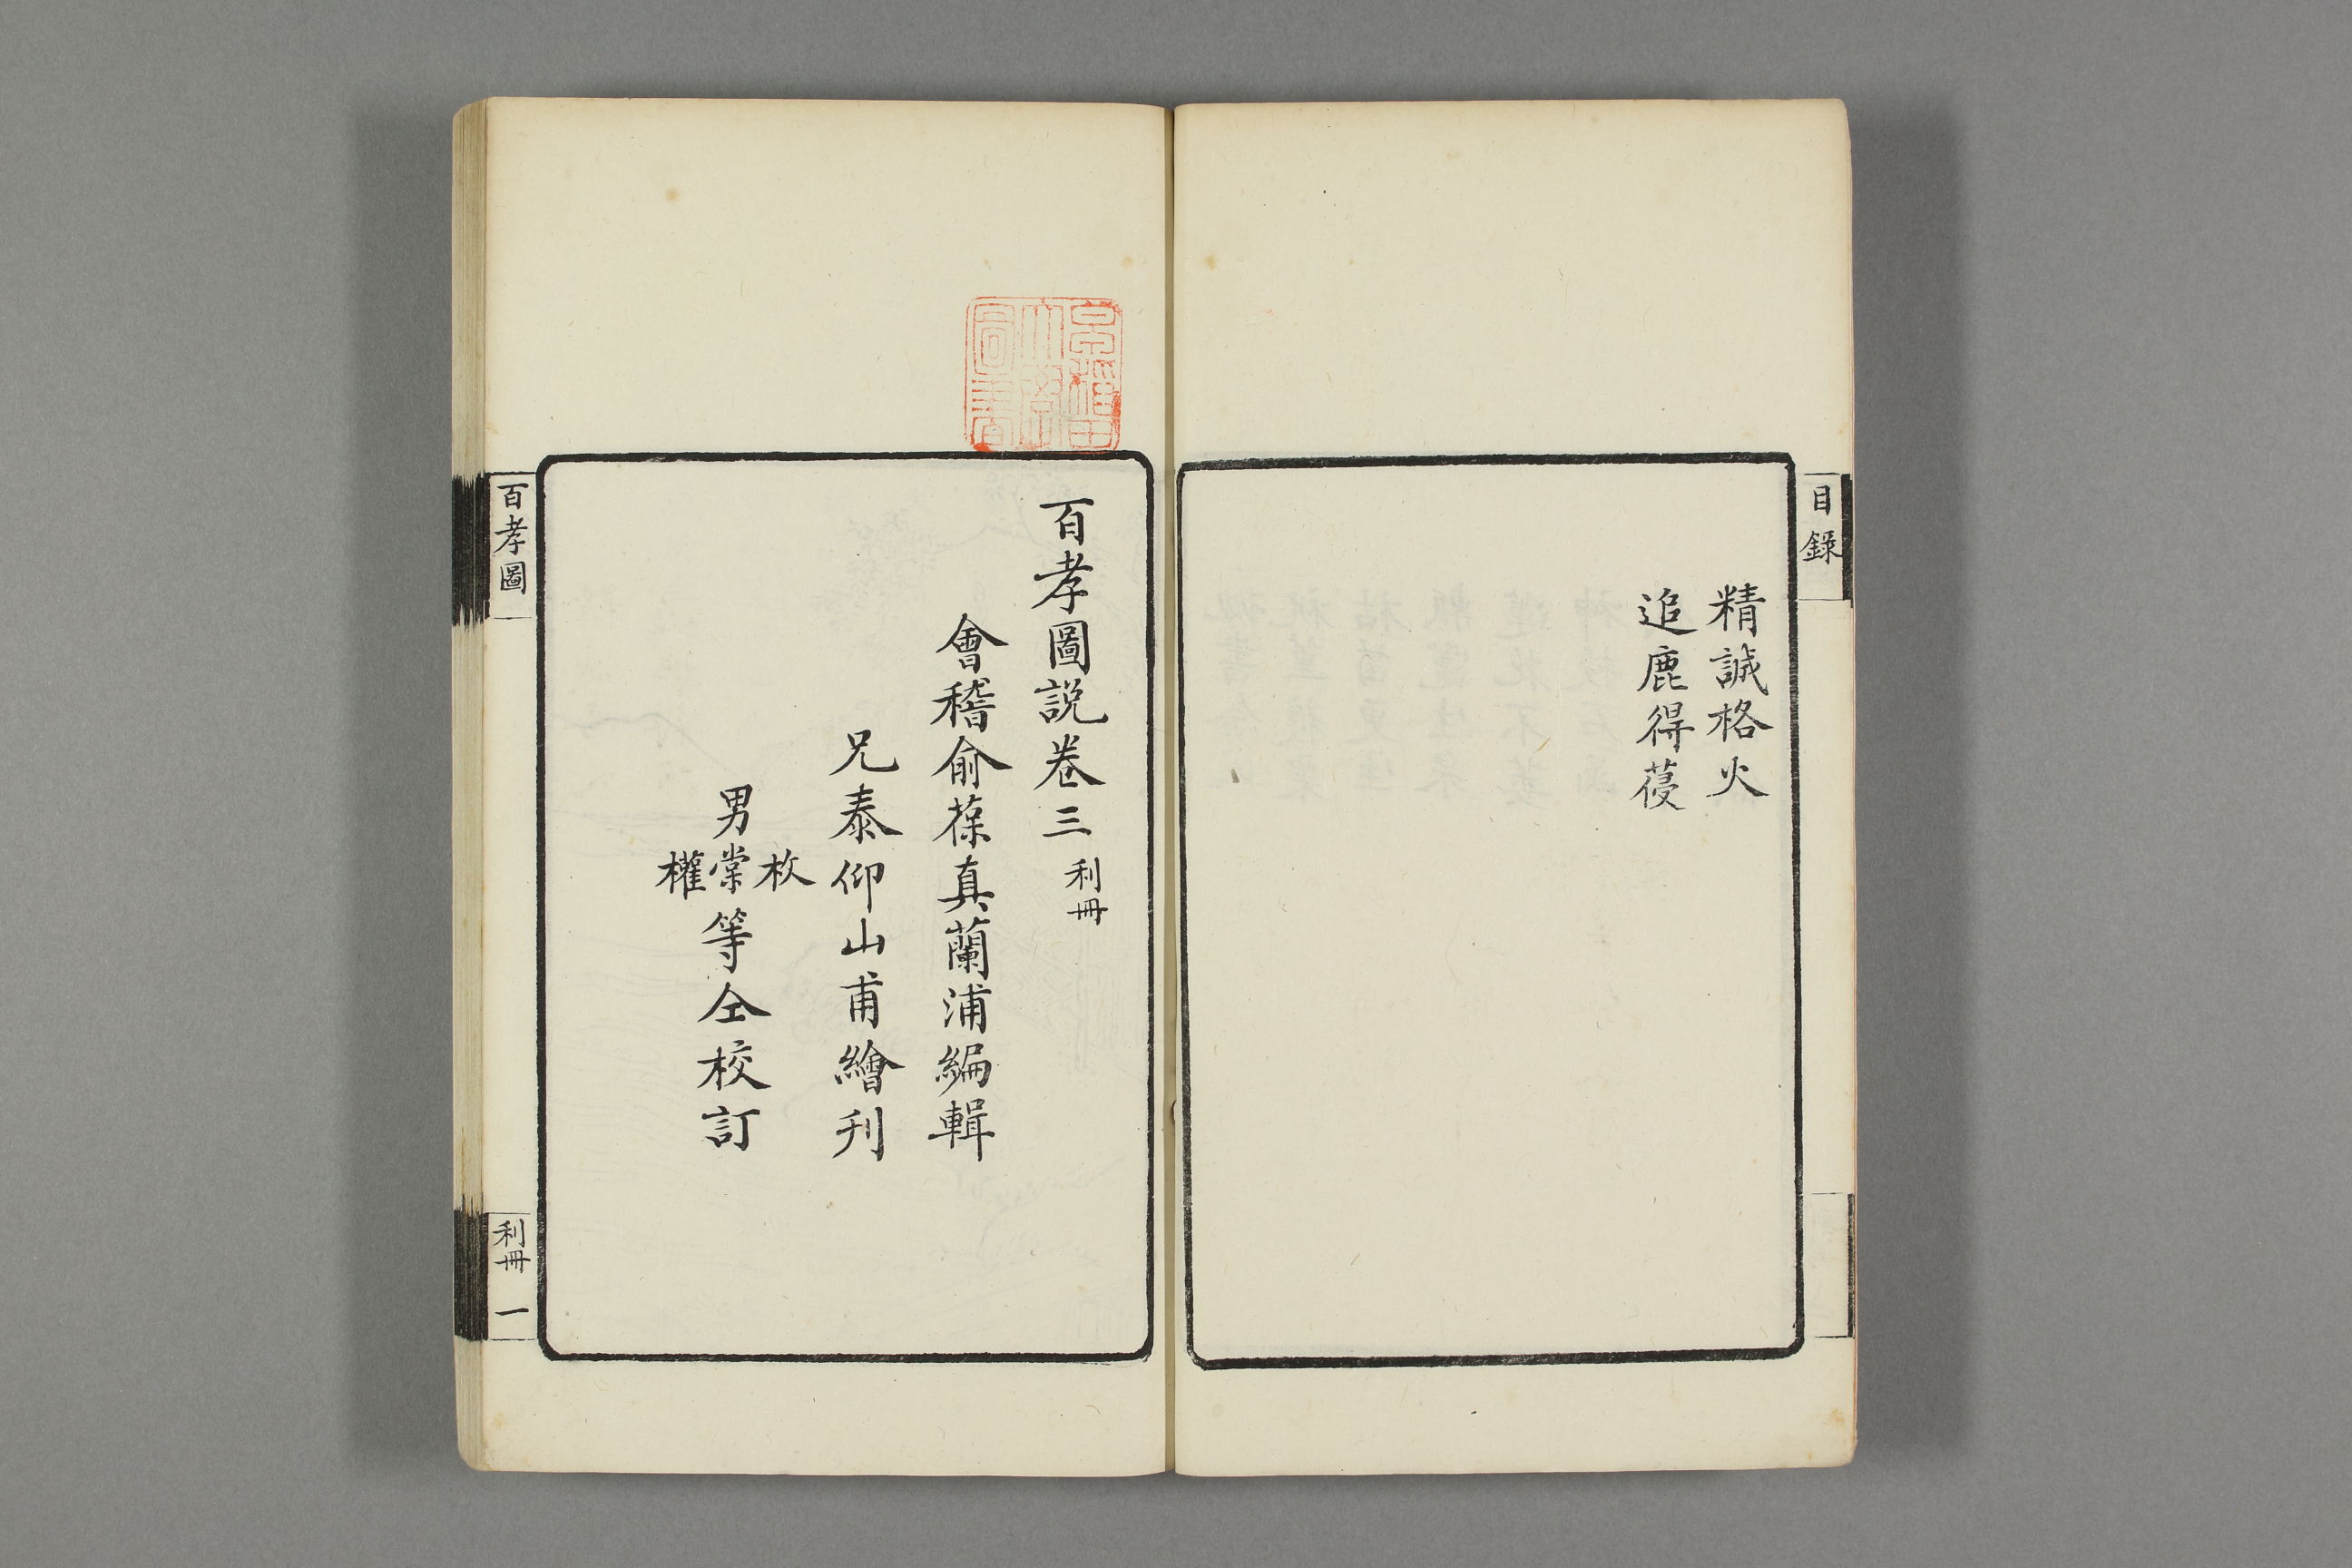 目錄
精誠格火
追鹿得葠
早稻田大學圖書
百孝圖說卷三 利冊
會稽俞葆真蘭浦編輯
兄泰仰山甫繪刋
男枚棠權等仝校訂
百孝圖
利冊 一